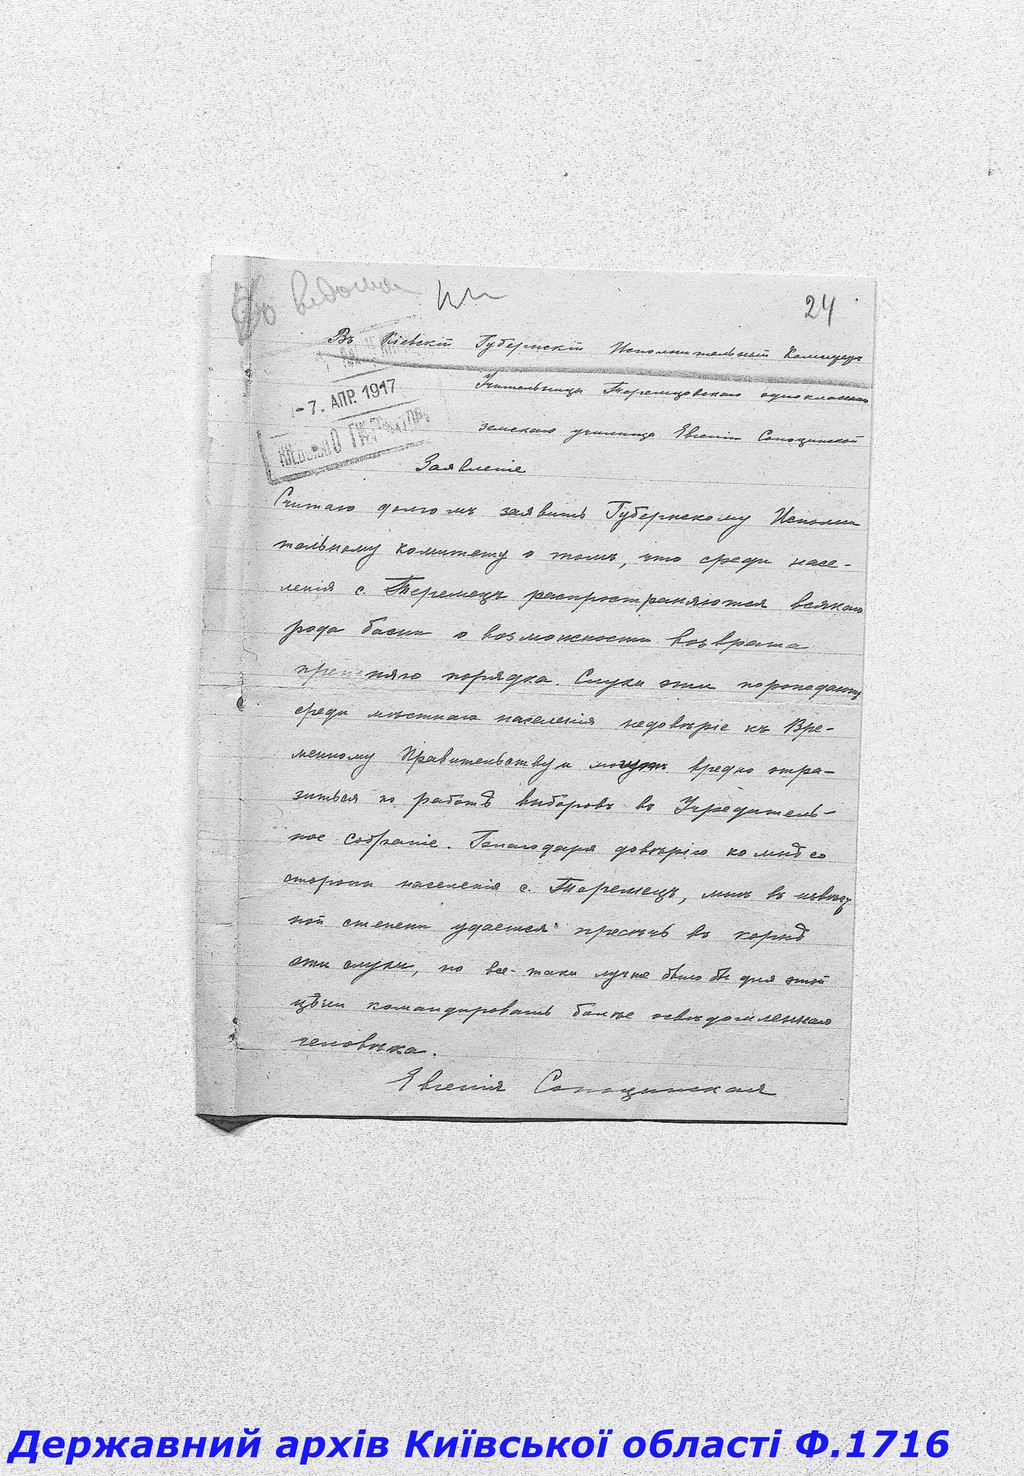 24
Въ Кіевскій Губернскій Исполнительный Комитетъ
Учительницы Теремцовскаго однокласснаго
земскаго училища Евгеніи Сопоцинской
-7. АПР. 1917
Заявленіе
Считаю долгомъ заявить Губернскому Исполни
тельному комитету о томъ, что среди насе-
ленія с. Теремецъ распространяются всякаго
рода басни о возможности возврата
прежняго порядка. Слухи эти порождаютъ
среди мѣстнаго населенія недовѣріе къ Вре-
менному Правительству и могутъ вредно отра-
зиться по работѣ выборовъ въ Учредитель-
ное собраніе. Благодаря довѣрію ко мнѣ со
стороны населенія с. Теремецъ, мнѣ въ извѣст
ной степени удается пресѣчь въ корнѣ
эти слухи, но все-таки лучше было бы для этой
цѣли командировать болѣе освѣдомленнаго
человѣка.
Евгенія Сопоцинская
Державний архів Київської області Ф.1716